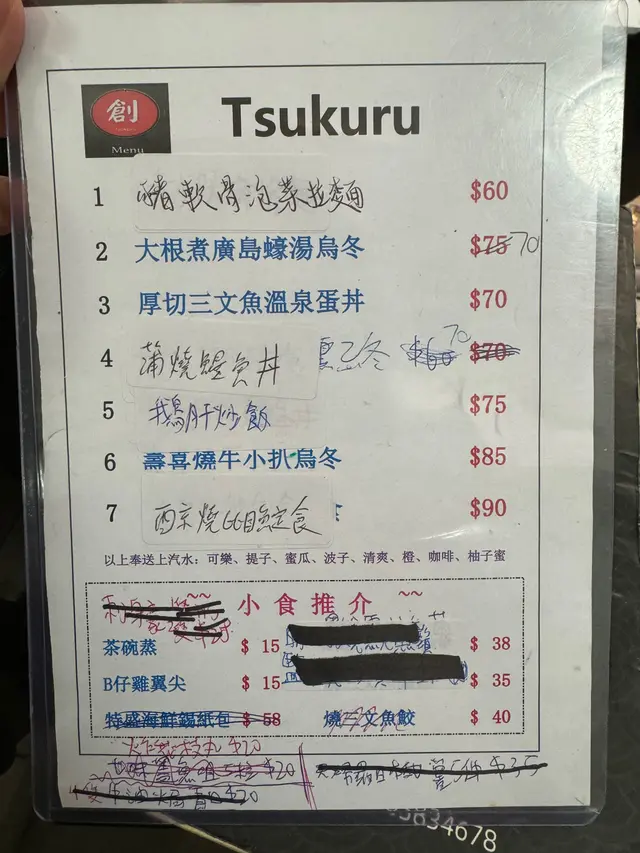 創
Menu
Tsukuru
1 豬軟骨泡菜拉麵 $60
2 大根煮廣島蠔湯烏冬 $75 70
3 厚切三文魚溫泉蛋丼 $70
4 蒲燒鰻魚丼 $70 70
5 鵝肝炒飯 $75
6 壽喜燒牛小扒烏冬 $85
7 西京燒 定食 $90
以上奉送上汽水：可樂、提子、蜜瓜、波子、清爽、橙、咖啡、柚子蜜
~~ 小食推介 ~~
茶碗蒸 $ 15
$ 38
B仔雞翼尖 $ 15
$ 35
特盛海鮮錫紙包 $ 58
燒三文魚鮫 $ 40
$20
$20
5件 $35
$20
5834678